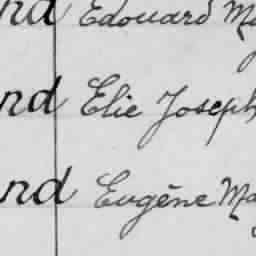 nd Edouard M
nd Elie Joseph
nd Eugène Ma